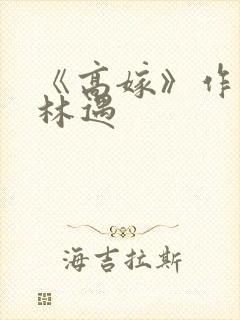 《高嫁》作
林遇
海吉拉斯